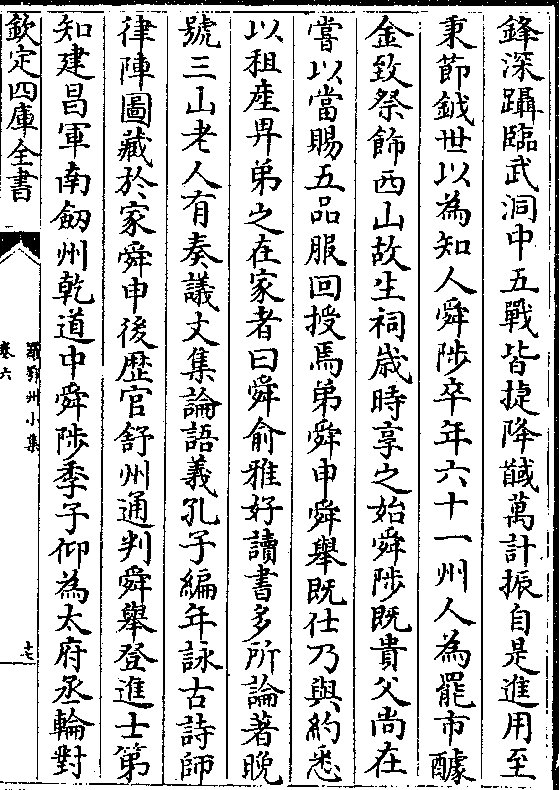 鋒深躡臨武洞中五戰皆捷降馘萬計振自是進用至
秉節鉞世以為知人舜陟卒年六十一州人為罷市醵
金致祭飾西山故生祠歲時享之始舜陟既貴父尚在
嘗以當賜五品服回授焉弟舜申舜舉既仕乃與約悉
以租產畀弟之在家者曰舜俞雅好讀書多所論著晚
號三山老人有奏議文集論語義孔子編年詠古詩師
律陣圖藏於家舜申後歴官舒州通判舜舉登進士第
知建昌軍南劒州乾道中舜陟季子仰為太府丞輪對
欽定四庫全書
羅鄂州小集
卷六